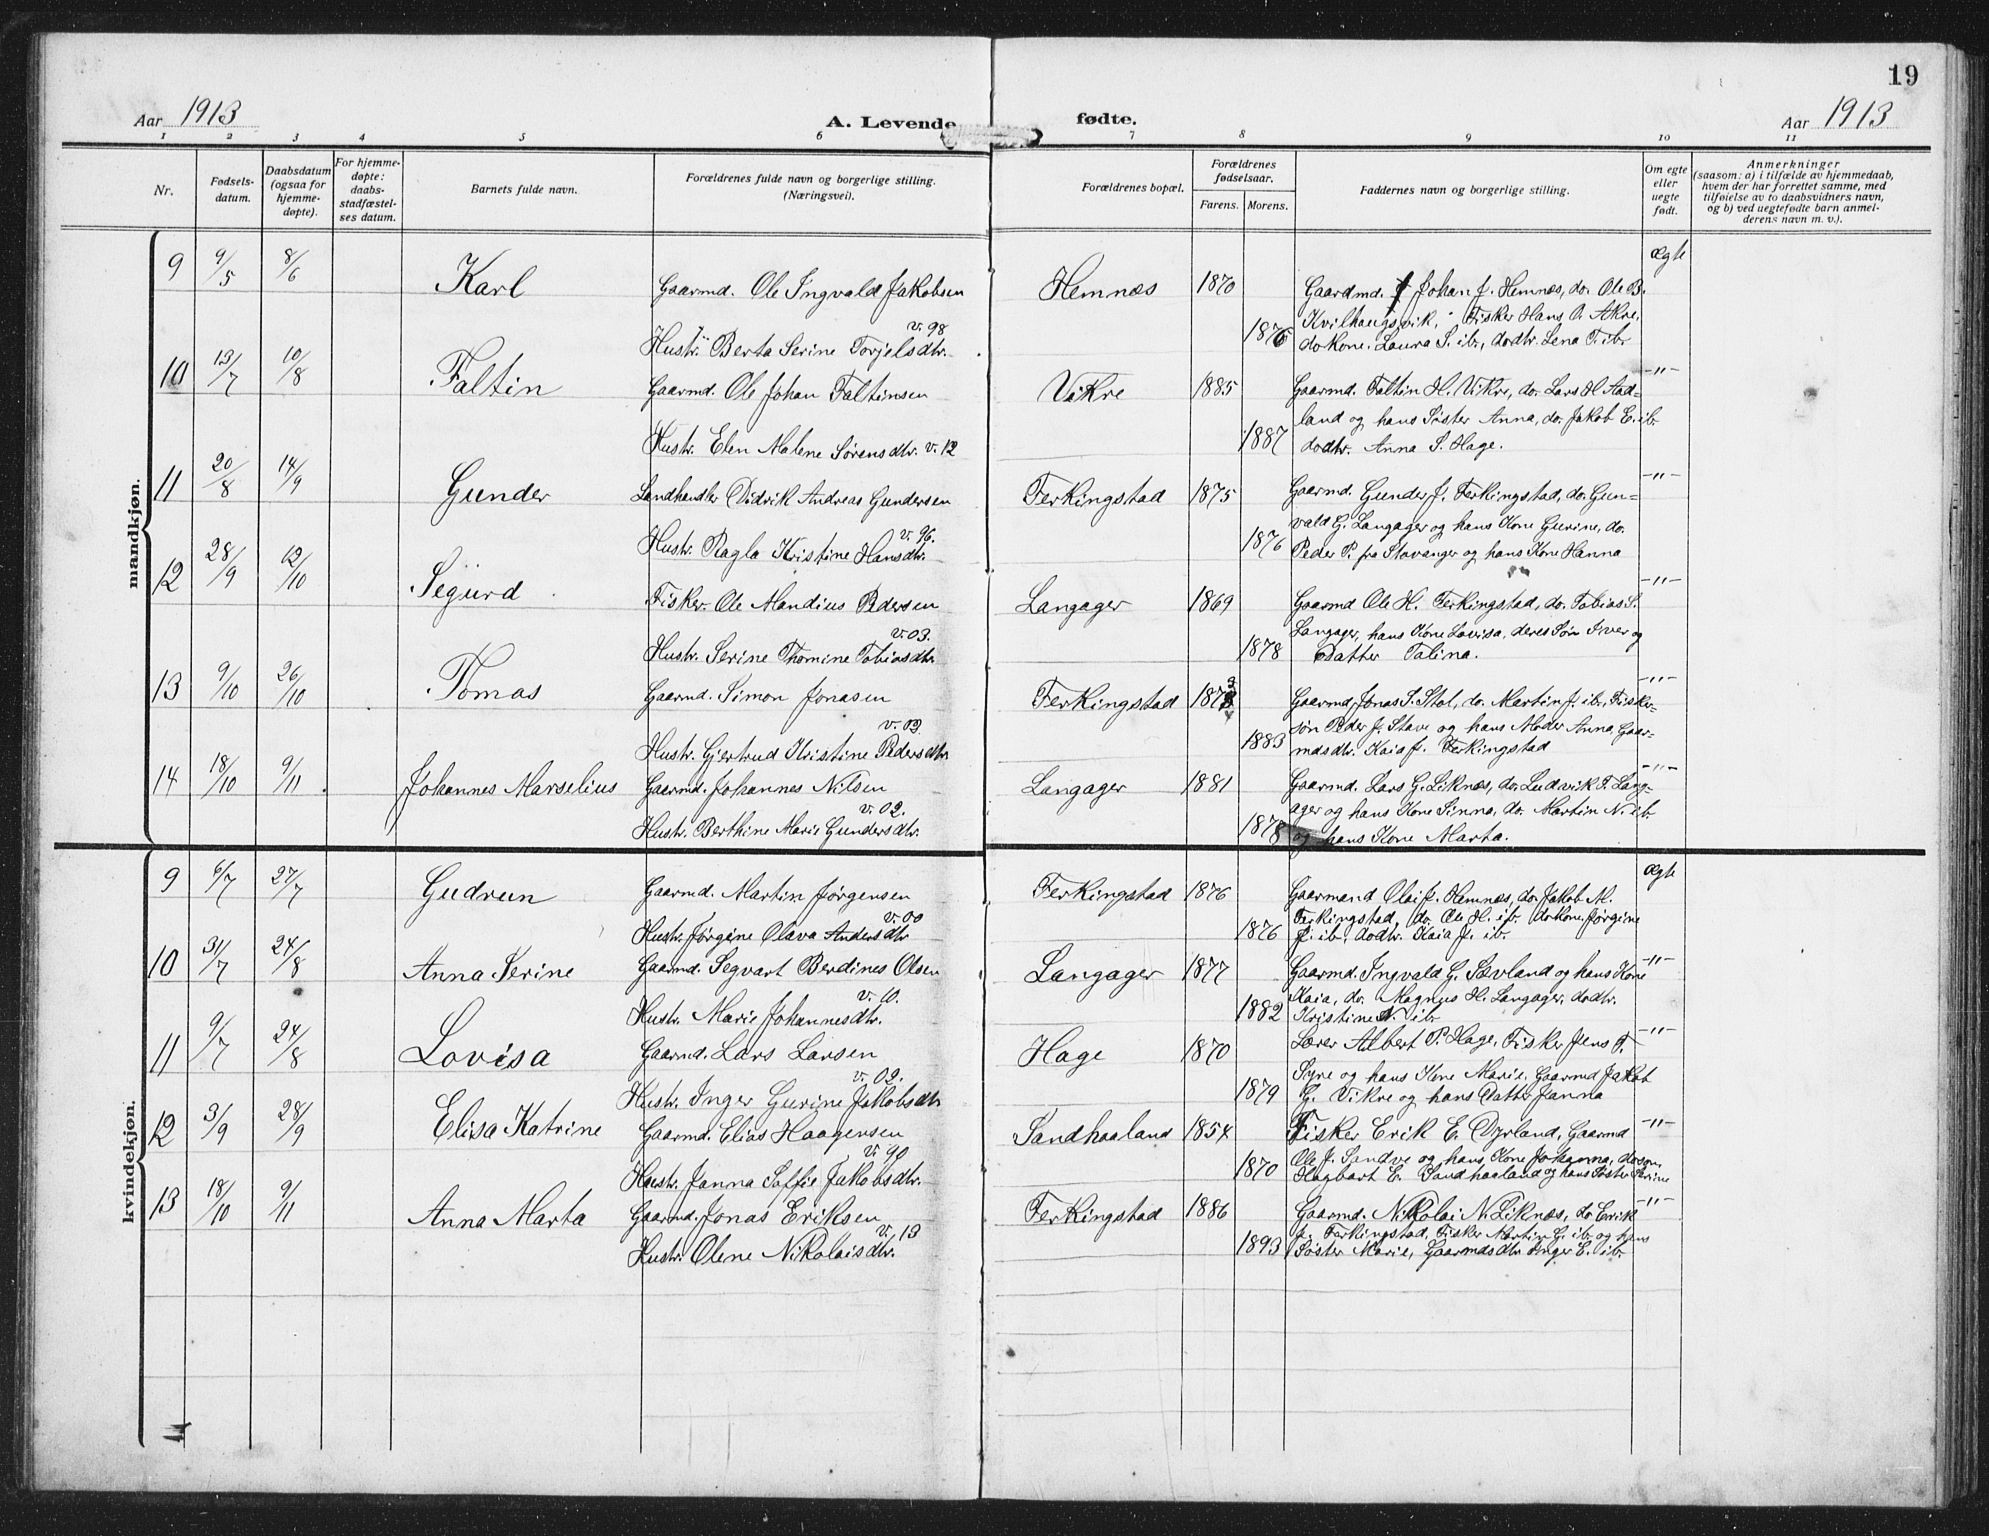 19
Aar 1913
A. Levende fødte.
Aar 1913
1 2 3 4 5 6 7 8 9 10 11
Nr.
Fødsels-
datum.
Daabsdatum
(ogsaa for
hjemme-
døpte).
For hjemme-
døpte:
daabs-
stadfæstel-
ses datum.
Barnets fulde navn.
Forældrenes fulde navn og borgerlige stilling.
(Næringsvei).
Forældrenes bopæl.
Forældrenes
fødselsaar.
Farens. Morens.
Faddernes navn og borgerlige stilling.
Om egte
eller
uegte
født.
Anmerkninger
(saasom: a) i tilfælde av hjemmedaab,
hvem der har forrettet samme, med
tilføielse av to daabsvidners navn,
og b) ved uegtefødte barn anmel-
derens navn m. v.).
mandkjøn.
9 9/5 8/6 Karl Gaarmd. Ole Ingvald Jakobsen Hemnæs 1870 Gaardmd. Johan J. Hemnæs, do. Ole B. Ægte
v. 98
Hustr. Berta Serine Torjelsdtr. 1876 Kvilhaugsvik, Fisker Hans O. Akre,
do Kone. Laura S. ib., dodtr. Lena T. ib.
10 13/7 10/8 Faltin Gaarmd. Ole Johan Faltinsen Vikre 1885 Gaarmd. Faltin H. Vikre, do. Lars H. Aad- -"-
land og hans Søster Anna, do. Jakob E. ib.
Hustr. Elen Malene Sørensdtr. v. 12 1887 dodtr. Anna S. Hage.
11 20/8 14/9 Gunder Landhandler Didrik Andreas Gundersen Ferkingstad 1875 Gaarmd. Gunder J. Ferkingstad, do. Gun- -"-
v. 96.
vald G. Langager og hans Kone Gurine, do.
Hustr. Ragla Kristine Hansdtr. 1876 Peder P. fra Stavanger og hans Kone Hanna
12 28/9 12/10 Sigurd Fisker Ole Mandius Pedersen Langager 1869 Gaarmd Ole H. Ferkingstad, do. Tobias S. -"-
v. 03.
Langager, hans Kone Lovisa, deres Søn Iver og
Hustr. Serine Thomine Tobiasdtr. 1878 Datter Talina.
13 9/10 26/10 Tomas Gaarmd. Simon Jonasen Ferkingstad 1873 Gaarmd. Jonas S. Stol, do. Martin J. ib., Fisker- -"-
v. 03.
søn Peder J. Stave og hans Moder Anna, Gaar-
Hustr. Gjertrud Kristine Pedersdtr. 1883 mdsdtr. Kaia J. Ferkingstad
14 18/10 9/11 Johannes Marselius Gaarmd. Johannes Nilsen Langager 1881 Gaarmd. Lars G. Liknæs, do. Ludvik T. Lang- -"-
v. 02.
ager og hans Kone Sinna, do. Martin N. ib.
Hustr. Berthine Marie Gundersdtr. 1878 og hans Kone Marta.
kvindekjøn.
9 6/7 27/7 Gudrun Gaarmd. Martin Jørgensen Ferkingstad 1876 Gaarmand Olai J. Hemnæs, do. Jakob M. Ægte
v. 00
Ferkingstad, do. Ole H. ib. do Kone Jørgine
Hustr. Jørgine Olava Andersdtr 1876 J. ib., dodtr. Kaia J. ib.
10 31/7 24/8 Anna Serine Gaarmd. Segvart Berdines Olsen Langager 1877 Gaarmd. Ingvald G. Sævland og hans Kone -"-
v. 10.
Kaia, do. Magnus H. Langager, dodtr.
Hustr. Marie Johannesdtr. 1882 Kristine N. ib.
11 9/7 24/8 Lovisa Gaarmd. Lars Larsen Hage 1870 Lærer Albert P. Hage, Fisker Jens T. -"-
v. 02.
Syre og hans Kone Marie, Gaarmd Jakob
Hustr. Inger Gurine Jakobsdtr 1879 G. Vikre og hans Datter Janna
12 3/9 28/9 Elisa Katrine Gaarmd. Elias Haagensen Sandhaaland 1854 Fisker Erik E. Dyrland, Gaarmd -"-
v. 90
Ole J. Sandve og hans Kone Johanna, do søn
Hustr. Janna Soffie Jakobsdtr. 1870 Hagbart E. Sandhaaland og hans Søster Serine
13 18/10 9/11 Anna Marta Gaarmd. Jonas Eriksen Ferkingstad 1886 Gaarmd. Nikolai N. Liknæs, do Erik -"-
v. 13
J. Ferkingstad, Fisker Martin G. ib. og hans
Hustr. Olene Nikolaisdtr. 1893 Søster Marie, Gaarmdsdtr Inger E. ib.